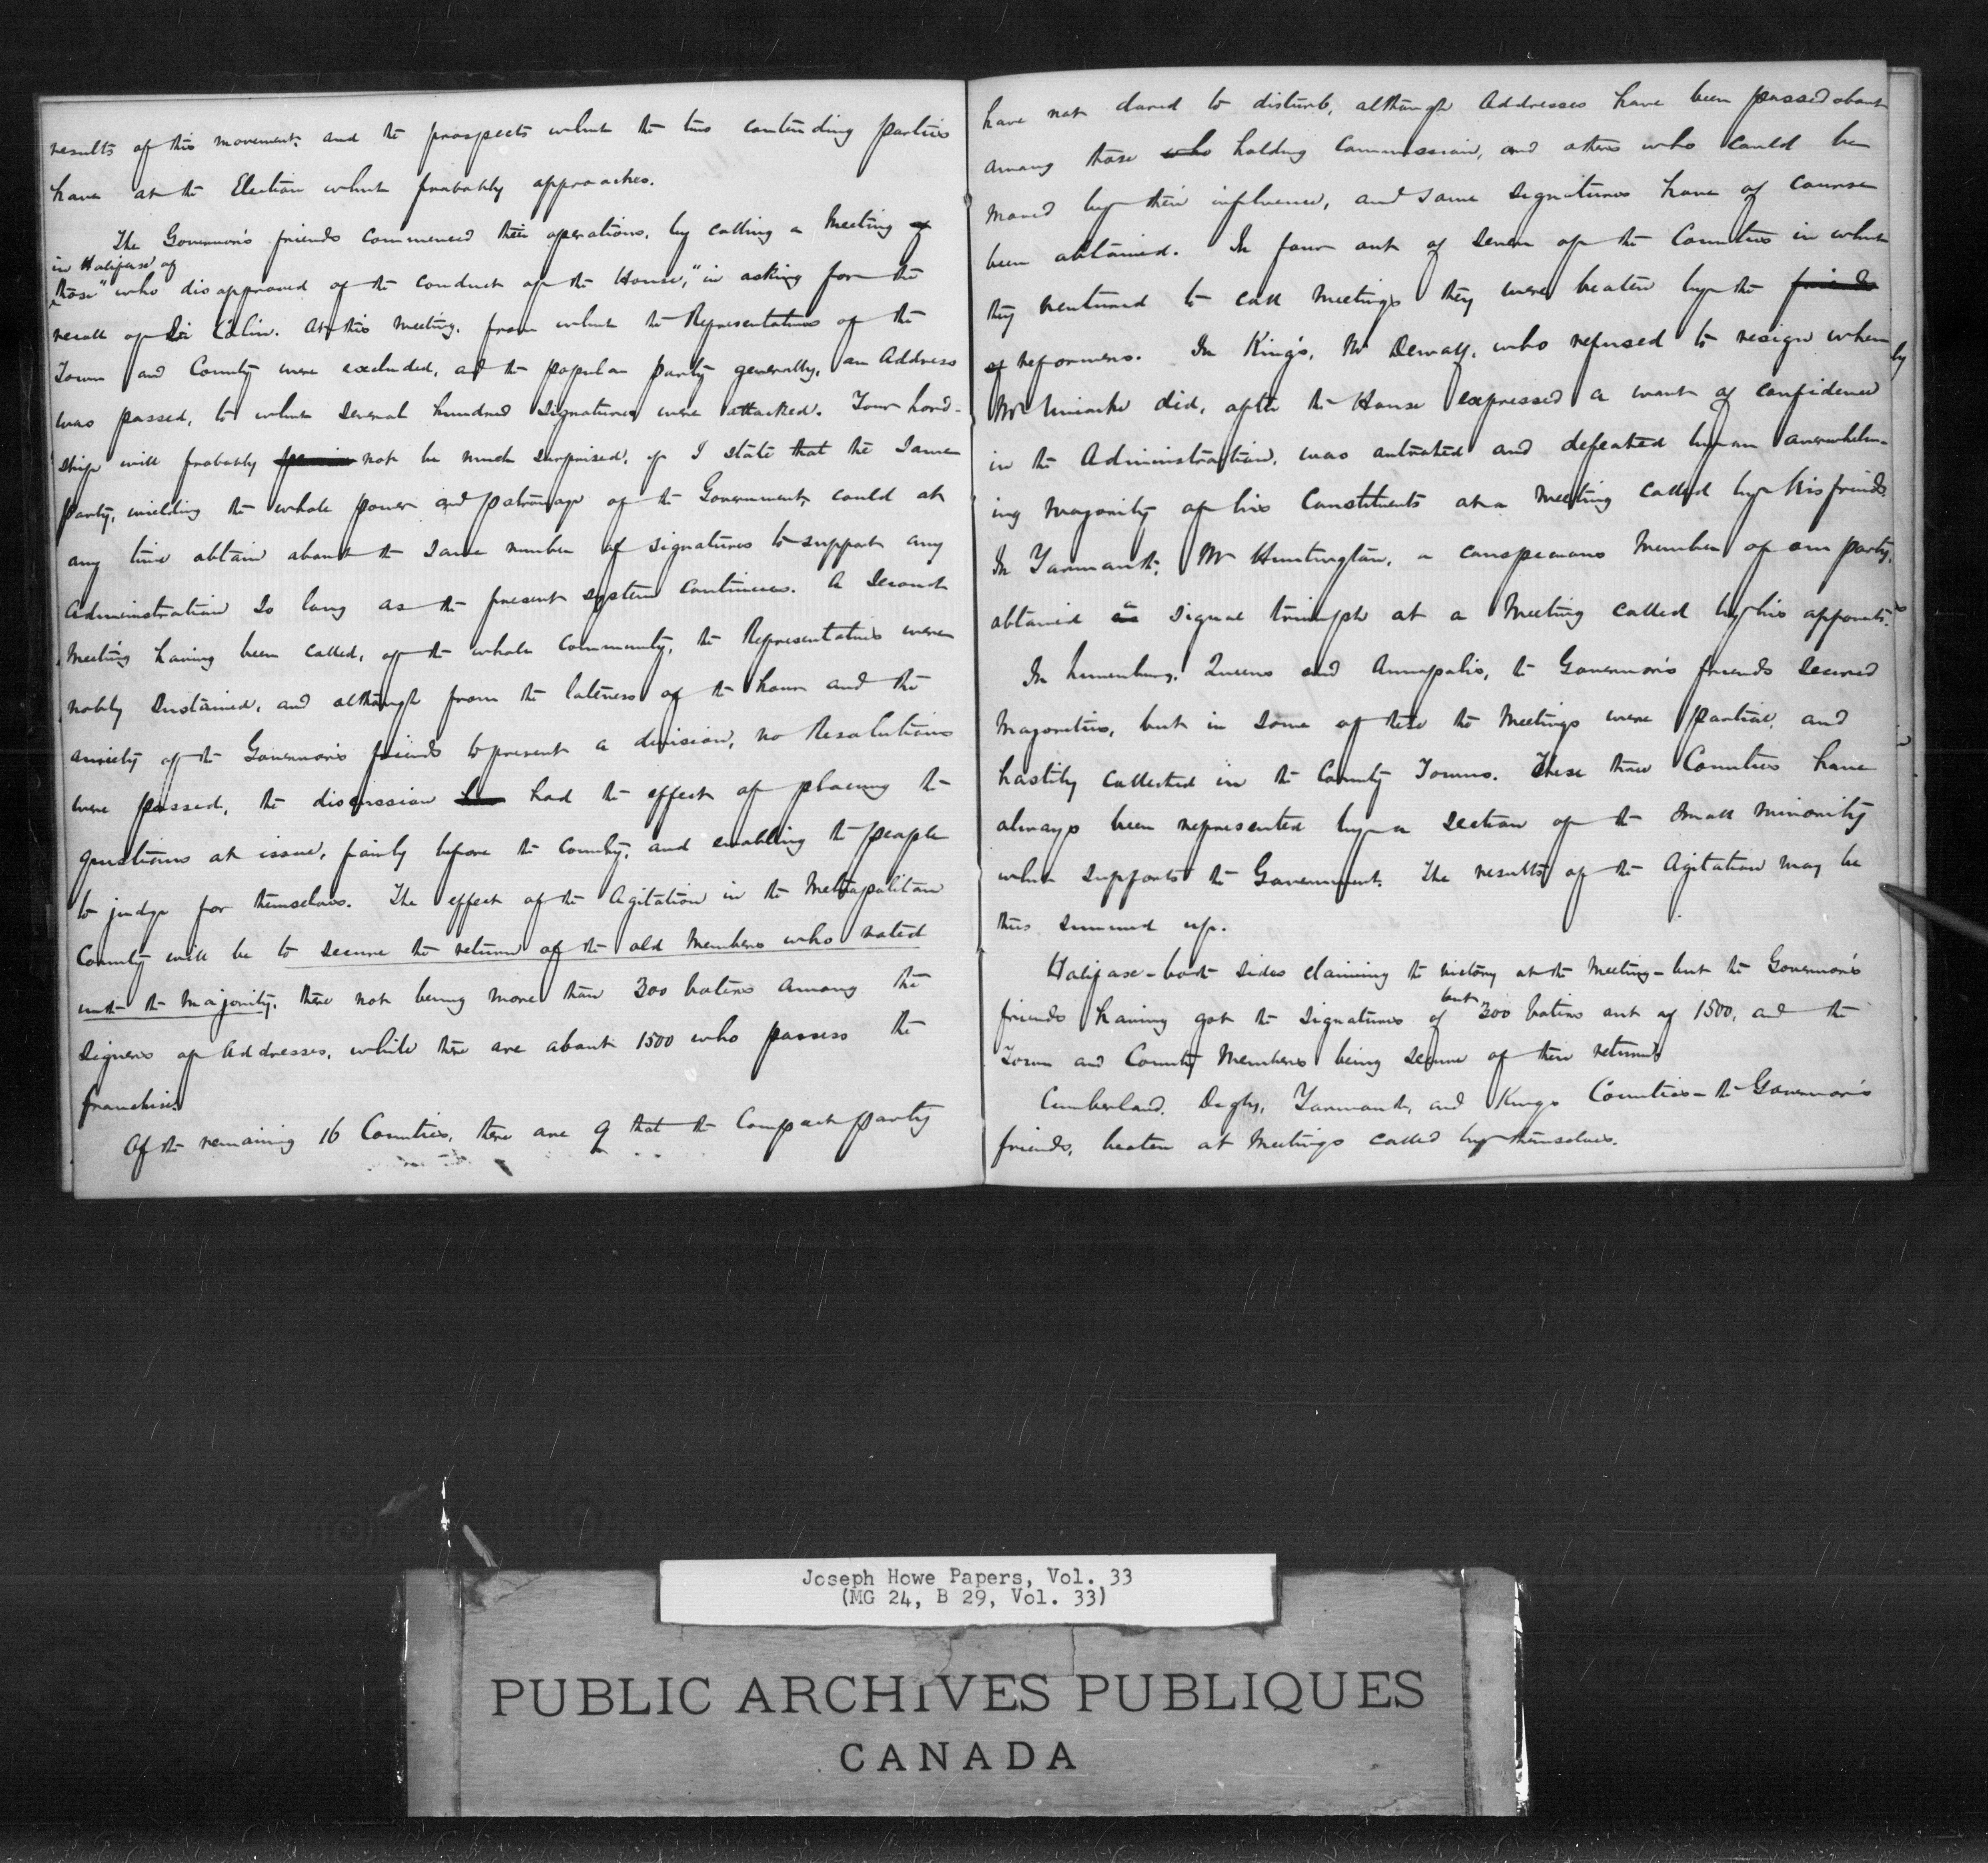 results of this movement, and the prospects which the two contending parties
have at the Election which probably approaches.
The Governor's friends commenced their operations, by calling a Meeting of
in Halifax of
those "who disapproved of the conduct of the House," in asking for the
recall of Sir Colin. At this Meeting, from which the Representatives of the
Town and County were excluded, and the popular party generally, an Address
was passed, to which several hundred signatures were attached. Your Lord-
ship will probably not be much surprised, if I state that the same
party, wielding the whole power and patronage of the Government, could at
any time obtain about the same number of signatures to support any
Administration so long as the present system continues. A second
Meeting having been called, of the whole Community, the Representatives were
nobly sustained, and although from the lateness of the hour and the
anxiety of the Governor's friends to prevent a division, no Resolutions
were passed, the discussion has had the effect of placing the
questions at issue, fairly before the Country, and enabling the people
to judge for themselves. The effect of the Agitation in the Metropolitan
County will be to secure the return of the old Members who voted
with the Majority, there not being more than 300 voters among the
signers of Addresses, while there are about 1500 who possess the
franchise.
Of the remaining 16 Counties, there are 9 that the Compact party
have not dared to disturb, although Addresses have been passed about
among those who holding Commissions, and others who could be
moved by their influence, and some signatures have of course
been obtained. In four out of seven of the Counties in which
they ventured to call Meetings they were beaten by the friends
of reformers. In King's, Mr Dewolf, who refused to resign when
Mr Uniacke did, after the House expressed a want of confidence
in the Administration, was outvoted and defeated by an overwhelm-
ing majority of his Constituents at a Meeting called by his friends.
In Yarmouth, Mr Huntington, a conspicuous Member of our party,
obtained a signal triumph at a Meeting called by his opponents.
In Lunenburg, Queens and Annapolis, the Governor's friends secured
Majorities, but in some of these the Meetings were partial, and
hastily collected in the County Towns. These three Counties have
always been represented by a section of the small minority
which supports the Government. The results of the Agitation may be
thus summed up.
Halifax - both sides claiming the victory at the Meeting - but the Governor's
friends having got the signatures of but 300 voters out of 1500, and the
Town and County Members being secure of their return.
Cumberland, Digby, Yarmouth, and Kings Counties - the Governor's
friends, beaten at Meetings called by themselves.
Joseph Howe Papers, Vol. 33
(MG 24, B 29, Vol. 33)
PUBLIC ARCHIVES PUBLIQUES
CANADA